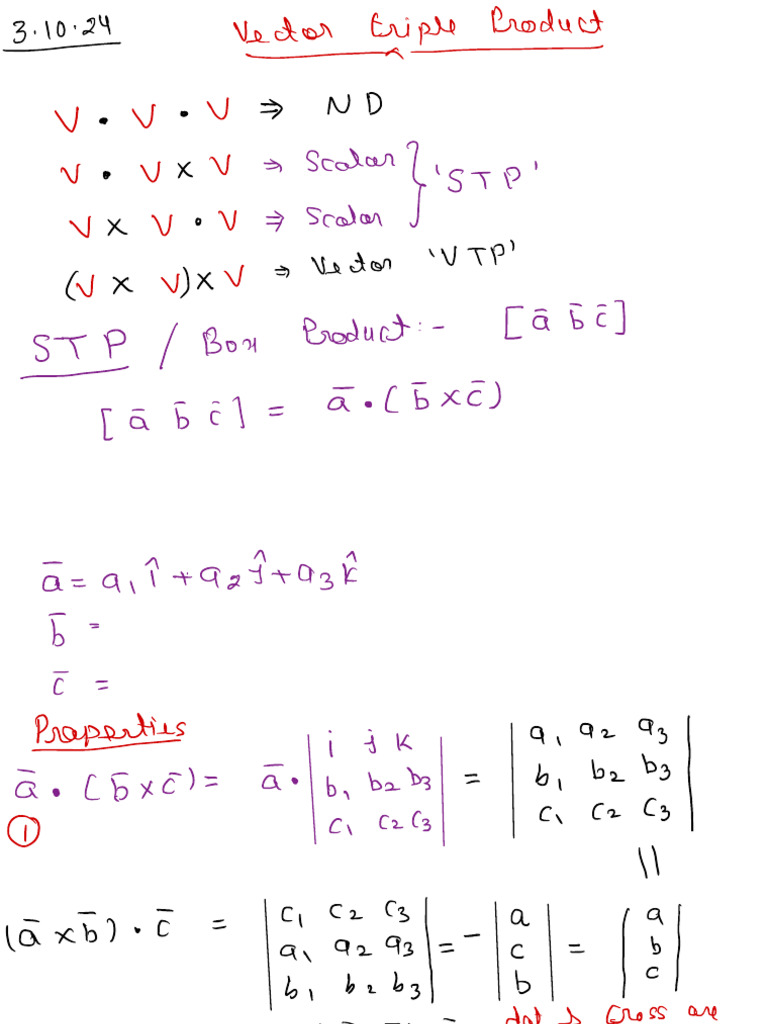 3.10.24 Vector Triple Product
V . V . V ⇒ ND
V . V × V ⇒ Scalar
V × V . V ⇒ Scalar } 'STP'
(V × V) × V ⇒ Vector 'VTP'
STP / Box Product :- [ā b̄ c̄]
[ā b̄ c̄] = ā . (b̄ × c̄)
ā = a₁î + a₂ĵ + a₃k̂
b̄ =
c̄ =
Properties
ā . (b̄ × c̄) = ā . | i j k | = | a₁ a₂ a₃ |
| b₁ b₂ b₃ | | b₁ b₂ b₃ |
① | c₁ c₂ c₃ | | c₁ c₂ c₃ |
||
(ā × b̄) . c̄ = | c₁ c₂ c₃ | = - | a | = | a |
| a₁ a₂ a₃ | | c | | b |
| b₁ b₂ b₃ | | b | | c |
dot & Cross are